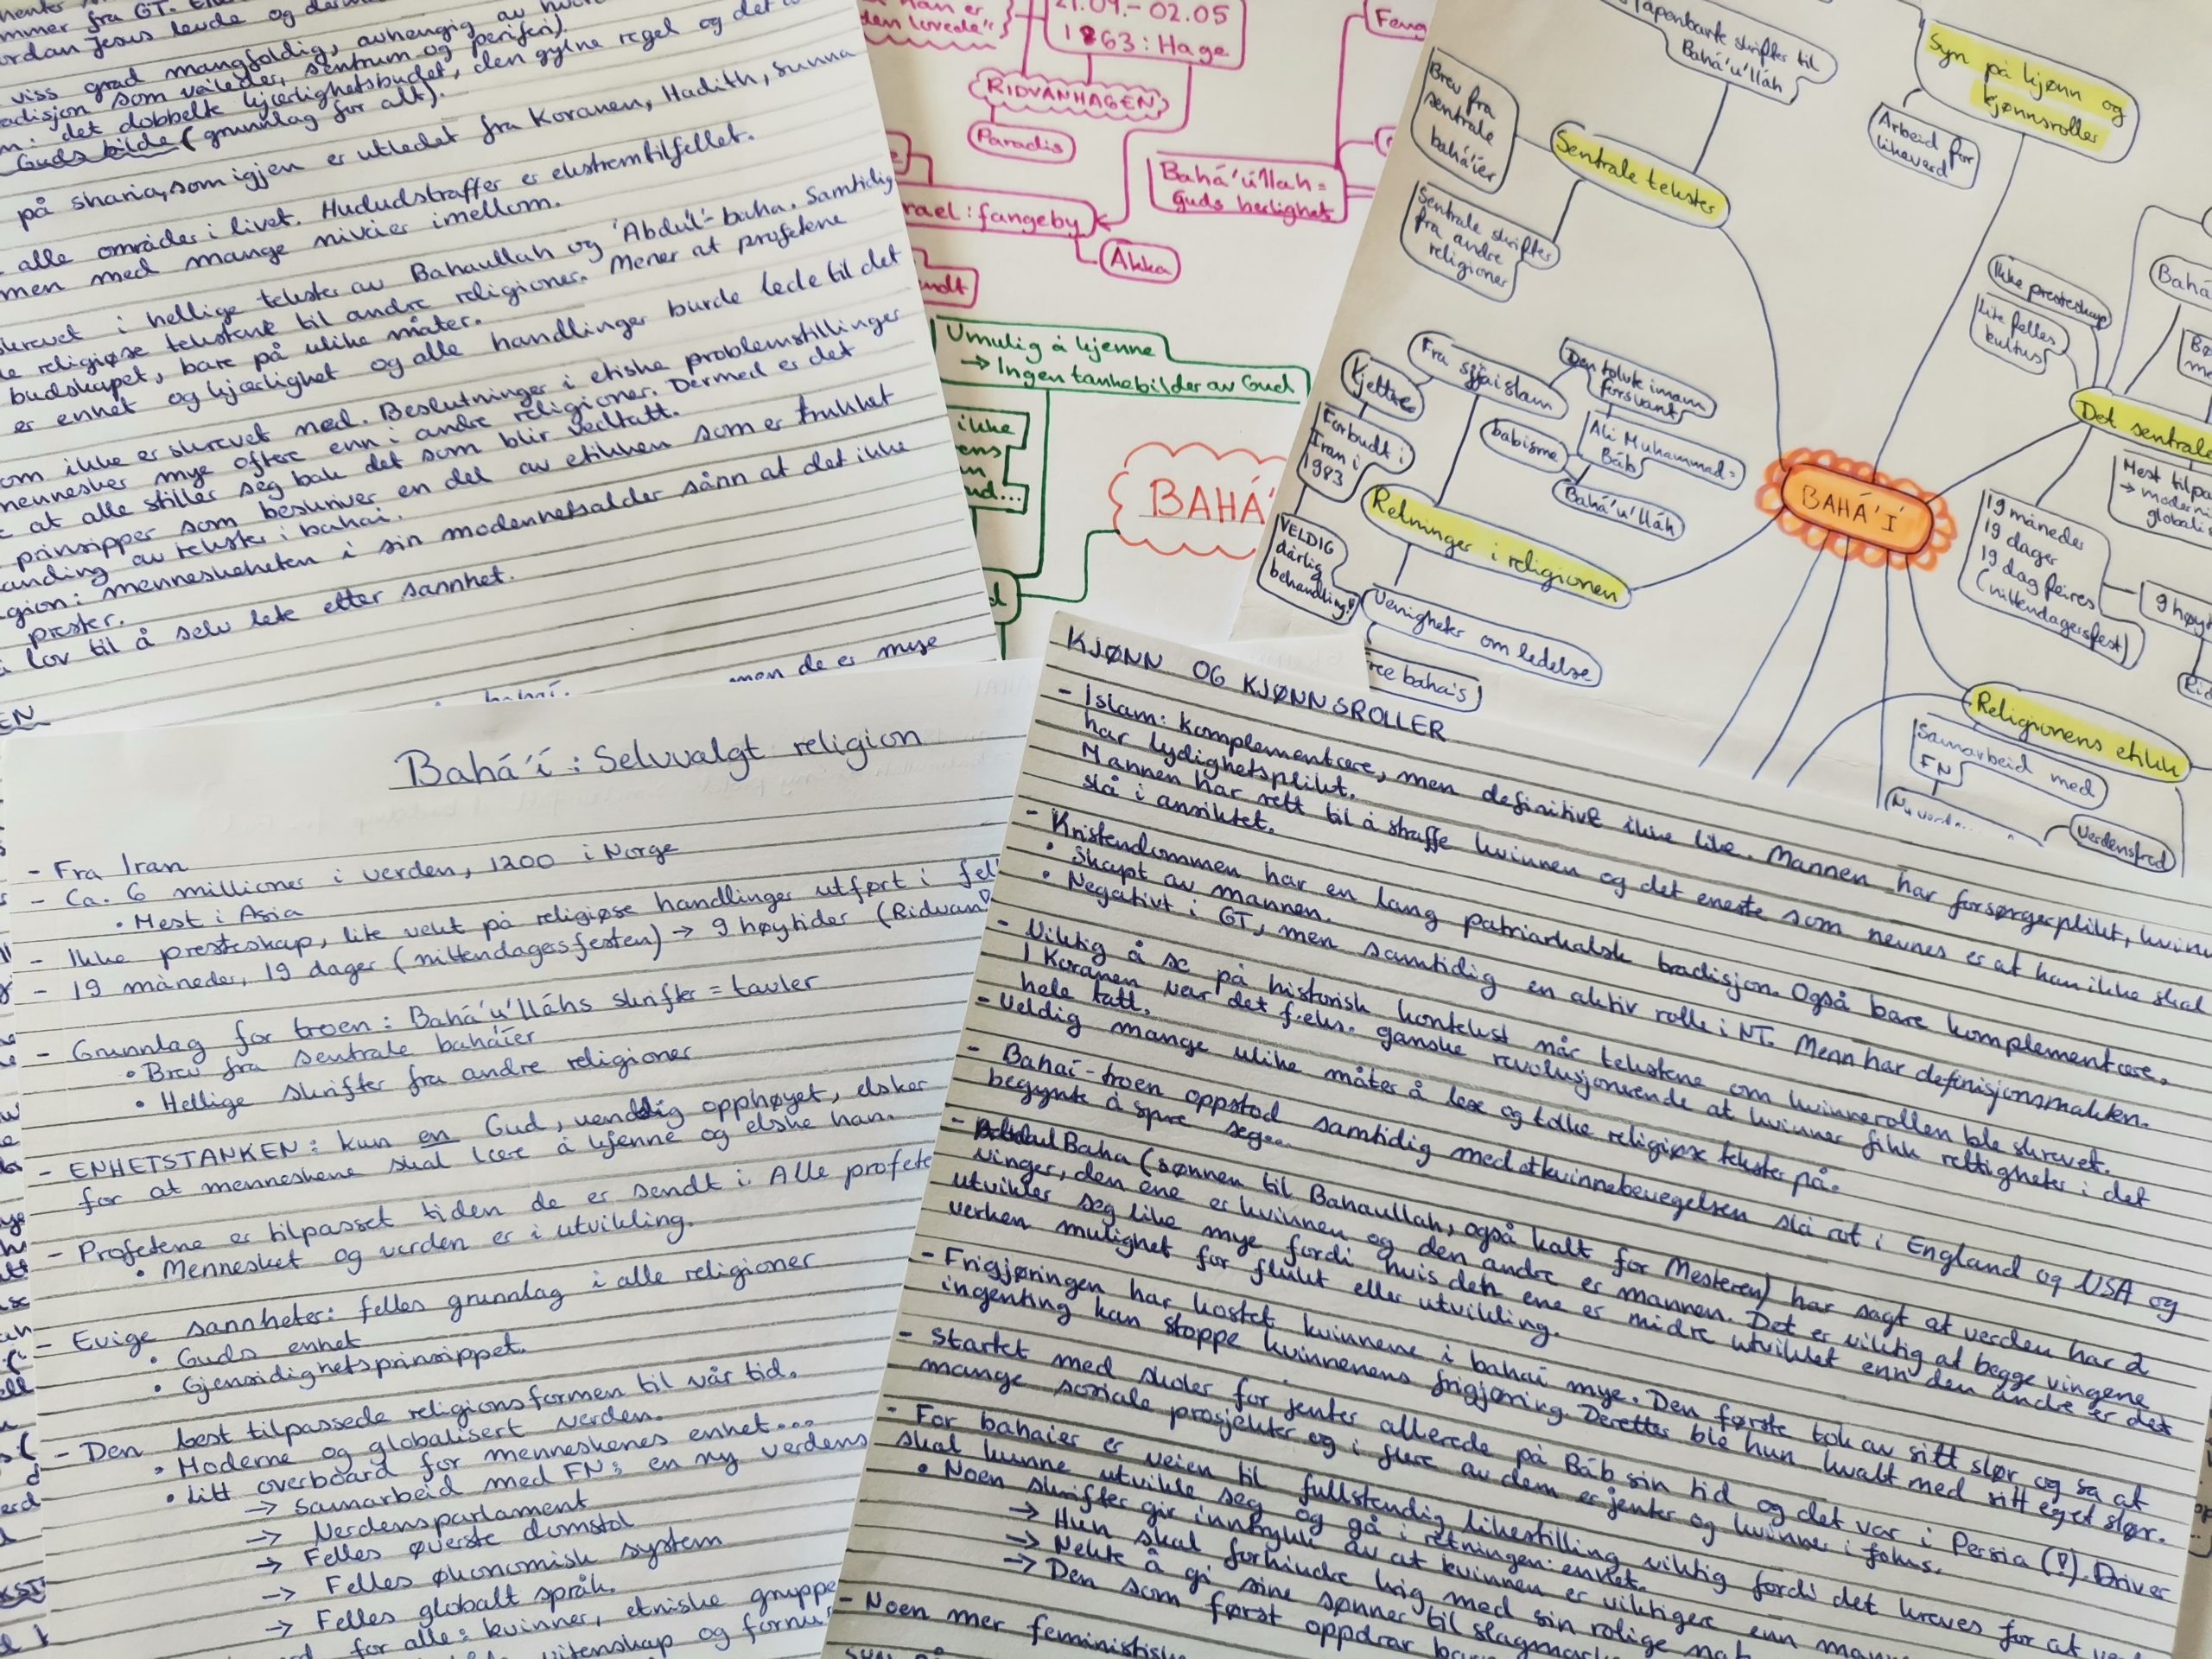 mmer fra GT.
ordan Jesus levde og
viss grad mangfoldig, avhengig av
adisjon som veileder, sentrum og periferi).
det dobbelte kjærlighetsbudet, den gylne regel og det
Guds bilde (grunnlag for alt).
på sharia, som igjen er utledet fra Koranen, Hadith, sunna
alle områder i livet. Hududstraffer er ekstremtilfellet.
men med mange nivåer imellom.
skrevet i hellige tekster av Bahaullah og 'Abdu'l'-baha. Samtidig
religiøse tekstene til andre religioner. Mener at profetene
budskapet, bare på ulike måter.
er enhet og kjærlighet og alle handlinger burde lede til det
om ikke er skrevet ned. Beslutninger i etiske problemstillinger
mennesker mye oftere enn i andre religioner. Dermed er det
at alle stiller seg bak det som blir vedtatt.
prinsipper som beskriver en del av etikken som er trukket
anding av tekster i bahai.
gion: menneskeheten i sin modenhetsalder sånn at det ikke
prester.
lov til å selv lete etter sannhet.
men de er mye
21.04.-02.05
1863: Hage
den lovede"
RIDVANHAGEN
Paradis
Bahá'ú'llah =
Guds herlighet
rael: fangeby
Akka
Umulig å kjenne
→ Ingen tankebilder av Gud
ikke
ud...
BAHÁ'
Fang
åpenbarte skrifter til
Bahá'u'lláh
Brev fra
sentrale
bahá'íer
Sentrale tekster
Sentrale skrifter
fra andre
religioner
Syn på kjønn og
kjønnsroller
Arbeid for
likeverd
Ikke presteskap
Lite felles
kultus
Bahá
Det sentrale
Mest tilpa
→ moderni
globalis
19 måneder
19 dager
19 dag feires
(nittendagersfest)
9 høyt
Rid
Fra sjiaislam
Kjettere
Forbudt i
Iran i
1983
VELDIG
dårlig
behandling!
Den tolvte imam
forsvant
babisme
Ali Muhammad =
Báb
Bahá'u'lláh
Retninger i religionen
Uenigheter om ledelse
ree bahais
BAHÁ'Í
Religionens etikk
Samarbeid med
FN
Verdensfred
Bahá'í: Selvvalgt religion
- Fra Iran
- Ca. 6 millioner i verden, 1200 i Norge
• Mest i Asia
- Ikke presteskap, lite vekt på religiøse handlinger utført i fel
- 19 måneder, 19 dager (nittendagersfesten) → 9 høytider (Ridvan
- Grunnlag for troen: Bahá'u'lláhs skrifter = tavler
• Brev fra sentrale bahá'íer
• Hellige skrifter fra andre religioner
- ENHETSTANKEN: kun en Gud, uendelig opphøyet, elsker
for at menneskene skal lære å kjenne og elske han.
- Profetene er tilpasset tiden de er sendt i. Alle profete
• Mennesket og verden er i utvikling.
- Evige sannheter: felles grunnlag i alle religioner
• Guds enhet
• Gjensidighetsprinsippet.
- Den best tilpassede religionsformen til vår tid.
• Moderne og globalisert verden.
• Litt overboard for menneskenes enhet...
→ Samarbeid med FN: en ny verdens
→ Verdensparlament
→ Felles øverste domstol
→ Felles økonomisk system
→ Felles globalt språk.
for alle: kvinner, etniske gruppe
vitenskap og fornu
KJØNN OG KJØNNSROLLER
- Islam: komplementære, men definitivt ikke like. Mannen har forsørgerplikt, kvinn
har lydighetsplikt.
Mannen har rett til å straffe kvinnen og det eneste som nevnes er at han ikke skal
slå i ansiktet.
- Kristendommen har en lang patriarkalsk tradisjon. Også bare komplementære.
• Skapt av mannen.
• Negativt i GT, men samtidig en aktiv rolle i NT. Menn har definisjonsmakten.
- Viktig å se på historisk kontekst når tekstene om kvinnerollen ble skrevet.
I Koranen var det f.eks. ganske revolusjonerende at kvinner fikk rettigheter i det
hele tatt.
- Veldig mange ulike måter å lese og tolke religiøse tekster på.
- Bahaí-troen oppstod samtidig med at kvinnebevegelsen slo rot i England og USA og
begynte å spre seg...
- Abdul Baha (sønnen til Bahaullah, også kalt for Mesteren) har sagt at verden har 2
vinger, den ene er kvinnen og den andre er mannen. Det er viktig at begge vingene
utvikler seg like mye fordi hvis den ene er midre utviklet enn den andre er det
verken mulighet for flukt eller utvikling.
- Frigjøringen har kostet kvinnene i bahaí mye. Den første tok av sitt slør og sa at
ingenting kan stoppe kvinnenens frigjøring. Deretter ble hun kvalt med sitt eget slør.
- Startet med skoler for jenter allerede på Báb sin tid og det var i Persia (!). Driver
mange sosiale prosjekter og i flere av dem er jenter og kvinner i fokus.
- For bahaier er veien til fullstendig likestilling viktig fordi det kreves for at
skal kunne utvikle seg og gå i retningen: enhet.
• Noen skrifter gir inntrykk av at kvinnen er viktigere enn
→ Hun skal forhindre krig med sin rolige
→ Nekte å gi sine sønner til
→ Den som først oppdrar
- Noen mer